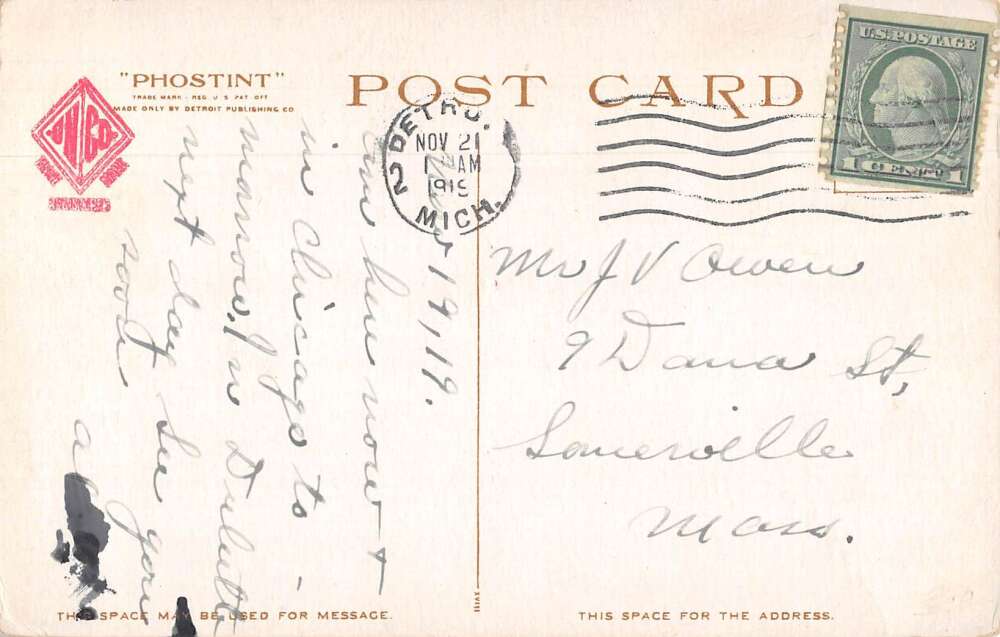 "PHOSTINT"
TRADE MARK - REG. U S PAT. OFF
MADE ONLY BY DETROIT PUBLISHING CO
POST CARD
U.S. POSTAGE
1 CENT 1
DETRO.
NOV 21
AM
1919
MICH.
2
19, 19.
here now +
in Chicago to-
morrow, in Duluth
next day See you
soon
Mr J V Owen
9 Dana St,
Somerville
Mass.
THIS SPACE MAY BE USED FOR MESSAGE.
XVIII
THIS SPACE FOR THE ADDRESS.